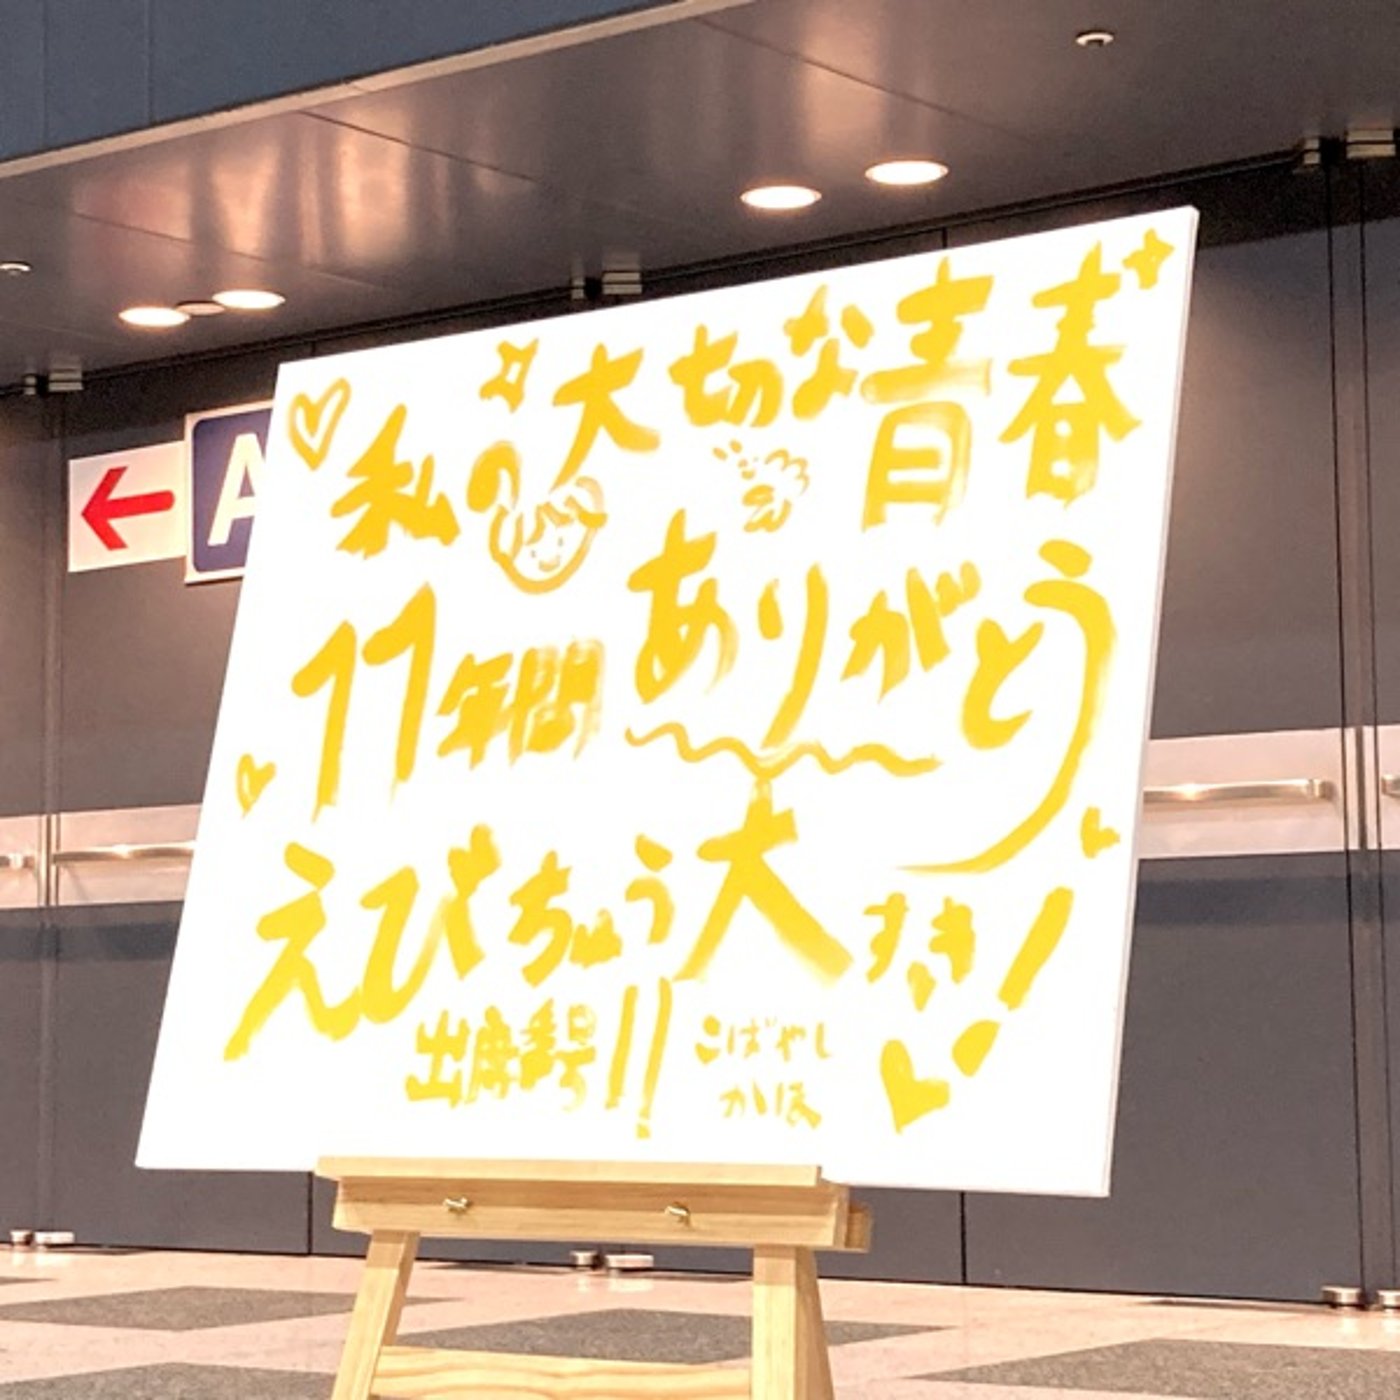 私の大切な青春
11年間ありがとう
えびちゅう大すき!
出席番号11
こばやし
かほ
A